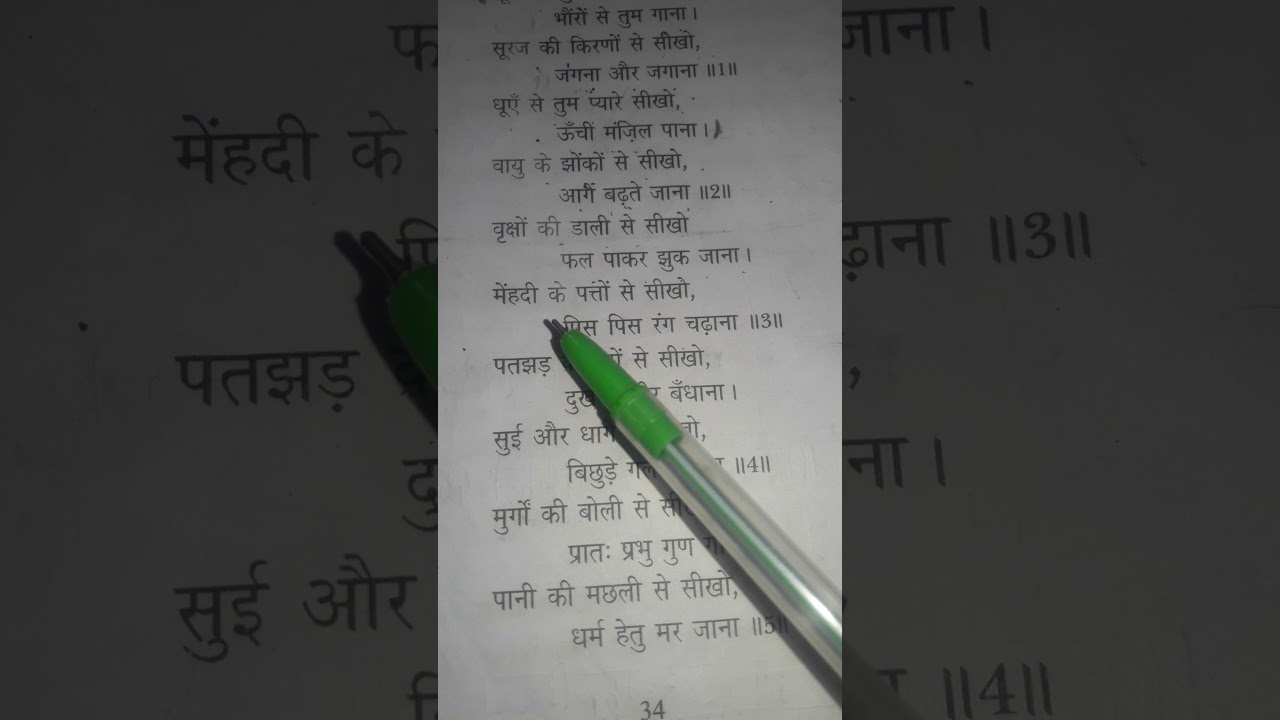 भौंरों से तुम गाना।
सूरज की किरणों से सीखो,
जगना और जगाना ॥1॥
धूएँ से तुम प्यारे सीखो,
ऊँची मंज़िल पाना।
वायु के झोंकों से सीखो,
आगे बढ़ते जाना ॥2॥
वृक्षों की डाली से सीखो
फल पाकर झुक जाना।
मेंहदी के पत्तों से सीखो,
पिस पिस रंग चढ़ाना ॥3॥
पतझड़ से सीखो,
दुख बँधाना।
सुई और धागे
बिछुड़े ॥4॥
मुर्गों की बोली से
प्रातः प्रभु गुण
पानी की मछली से सीखो,
धर्म हेतु मर जाना ॥5॥
34